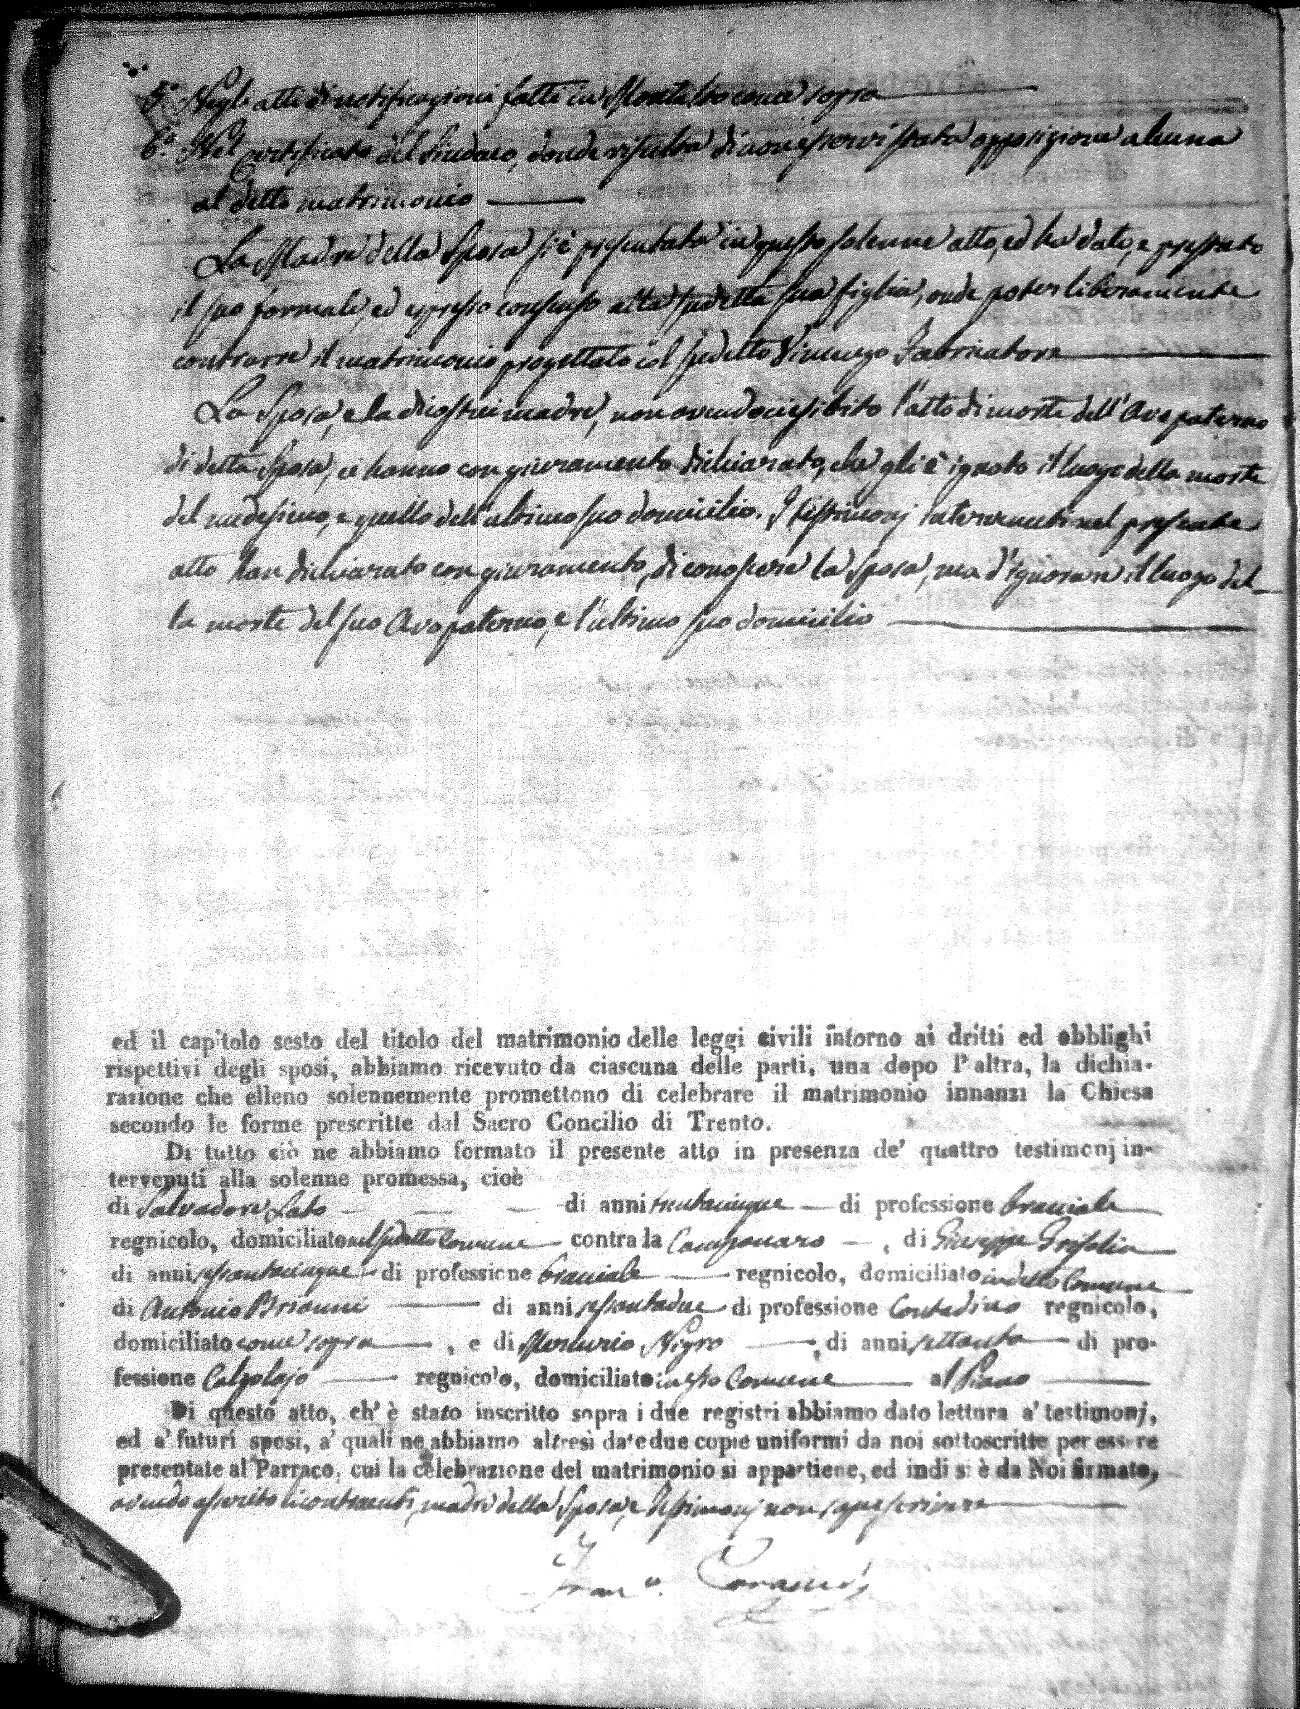 5.° Negli atti di notificazioni fatti in Montalto come sopra
6.° Nel certificato del Sindaco, donde risulta di non esservi stata opposizione alcuna
al detto matrimonio
La Madre della Sposa si è presentata in questo solenne atto, ed ha dato, e prestato
il suo formale, ed espresso consenso alla sudetta sua figlia, onde poter liberamente
contrarre il matrimonio progettato col sudetto Vincenzo Fabricatore
La Sposa, e la di costei madre, non avendoci esibito l'atto di morte dell'Avo paterno
di detta Sposa, ci hanno con giuramento dichiarato, che gli è ignoto il luogo della morte
del medesimo, e quello dell'ultimo suo domicilio. I testimonj intervenuti nel presente
atto han dichiarato con giuramento, di conoscere la Sposa, ma d'ignorare il luogo del-
la morte del suo Avo paterno, e l'ultimo suo domicilio
ed il capitolo sesto del titolo del matrimonio delle leggi civili intorno ai dritti ed obblighi
rispettivi degli sposi, abbiamo ricevuto da ciascuna delle parti, una dopo l'altra, la dichia-
razione che elleno solennemente promettono di celebrare il matrimonio innanzi la Chiesa
secondo le forme prescritte dal Sacro Concilio di Trento.
Di tutto ciò ne abbiamo formato il presente atto in presenza de' quattro testimonj in-
tervenuti alla solenne promessa, cioè
di Salvadore Lato di anni trentacinque di professione bracciale
regnicolo, domiciliato nel sudetto Comune contra la Camponaro, di Giuseppe Grisolia
di anni sessantacinque di professione bracciale regnicolo, domiciliato in detto Comune
di Antonio Brionni di anni sessantadue di professione Contadino regnicolo,
domiciliato come sopra, e di Mercurio Nigro, di anni settanta di pro-
fessione Calzolajo regnicolo, domiciliato in esso Comune al Piano
Di questo atto, ch' è stato inscritto sopra i due registri abbiamo dato lettura a' testimonj,
ed a' futuri sposi, a' quali ne abbiamo altresì date due copie uniformi da noi sottoscritte per essere
presentate al Parroco, cui la celebrazione del matrimonio si appartiene, ed indi si è da Noi firmato,
avendo asserito i contraenti, madre della Sposa, e Testimonj non saper scrivere
Fran.co